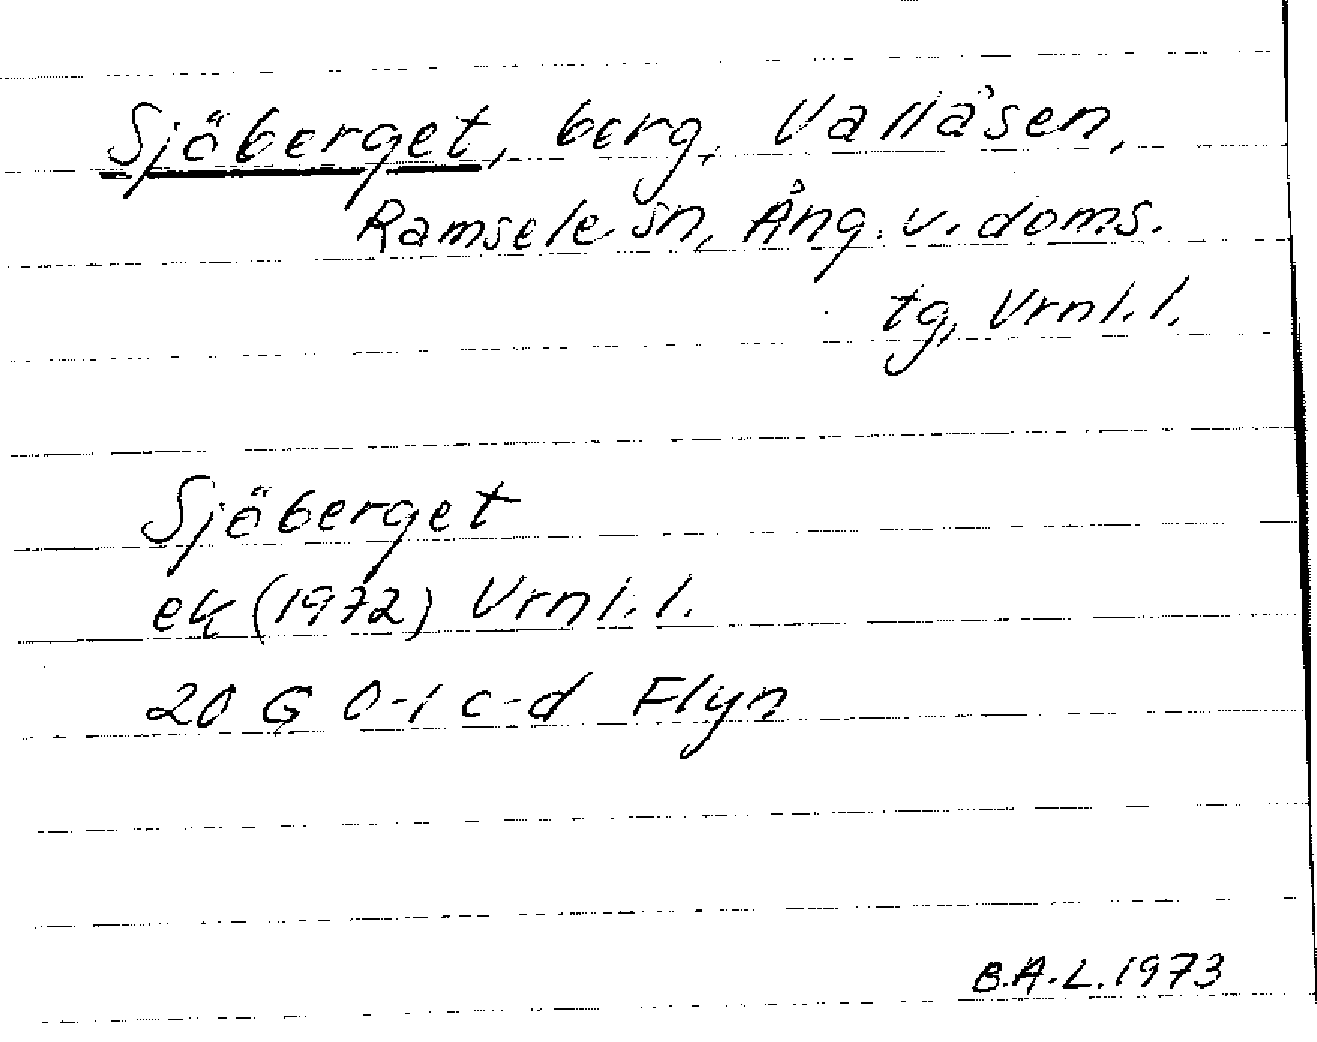 Sjöberget, berg, Vallåsen,
Ramsele sn, Ång. v. doms.
tg, Vrnl. l.
Sjöberget
ek (1972) Vrnl. l.
20 G 0-1 c-d Flyn
B.A.L. 1973